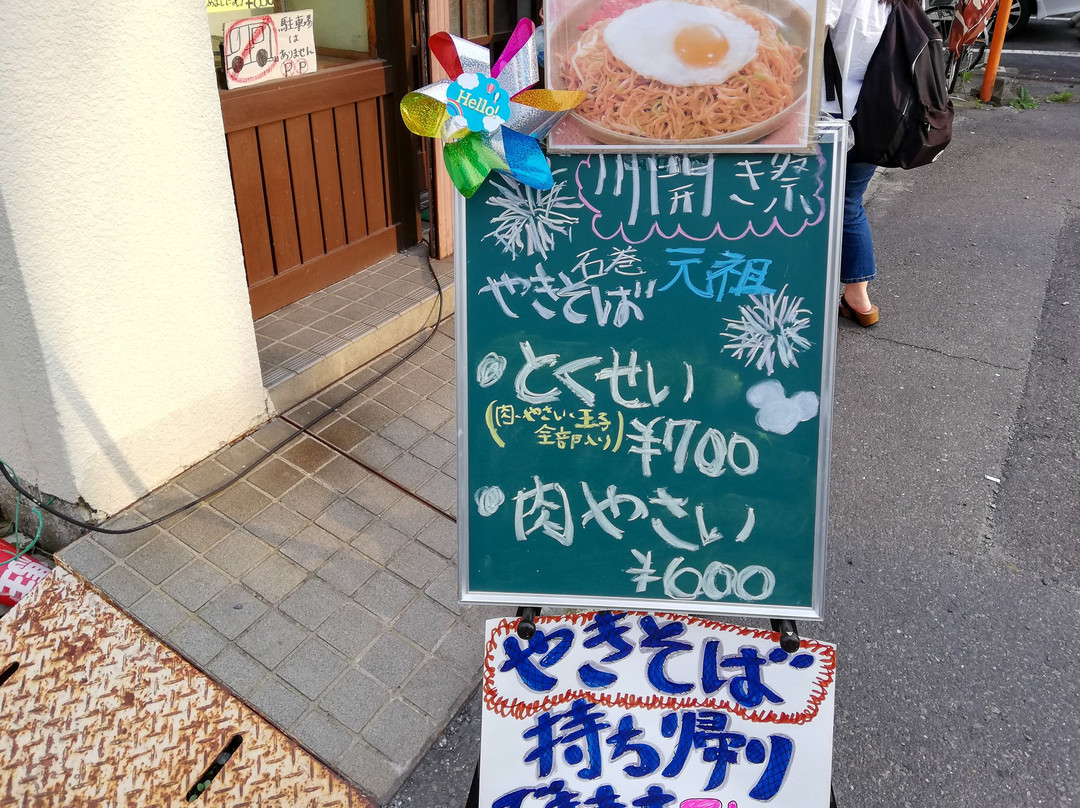 駐車場
は
ありません
P P
Hello!
川開き祭
石巻
元祖
やきそば
とくせい
(肉・やさい・玉子
全部入り)
¥700
肉やさい
¥600
やきそば
持ち帰り
できます